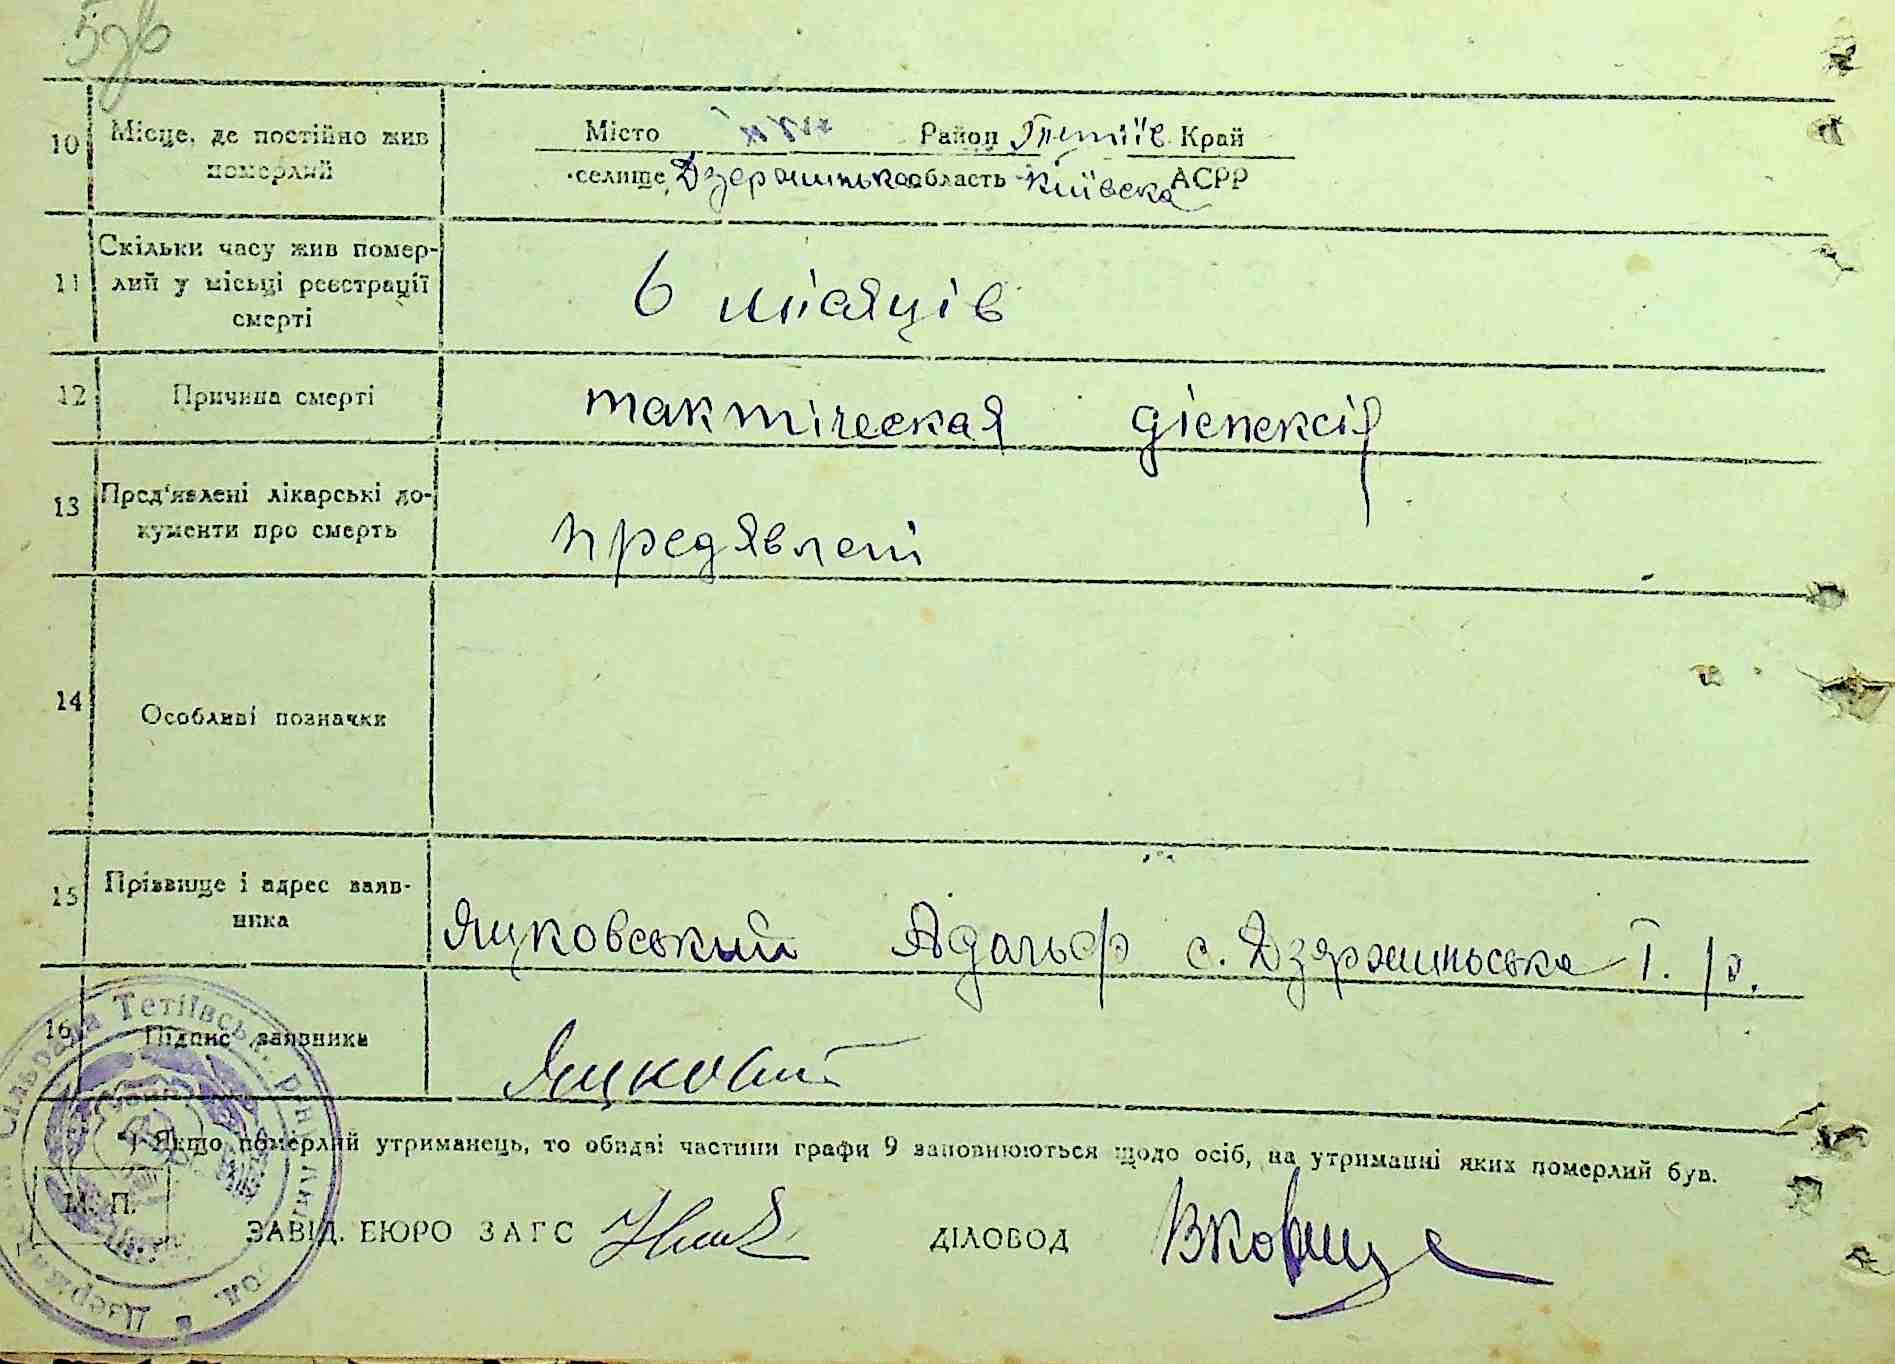 10 Місце, де постійно жив
померлий
Місто Район Тетіїв Край
селище Дзержинька область Київска АСРР
11 Скільки часу жив помер-
лий у місьці реєстрації
смерті
6 місяців
12 Причина смерті
тактіческая діепексія
13 Пред'явлені лікарські до-
кументи про смерть
предявлені
14 Особливі позначки
15 Прізвище і адрес заяв-
ника
Яцковський Адольф с. Дзяржиньська Т. р.
16 Підпис заявника
*) Якщо померлий утриманець, то обидві частини графи 9 заповнюються щодо осіб, на утриманні яких померлий був.
М. П.
ЗАВІД. БЮРО ЗАГС
ДІЛОВОД
Сільрада Тетіївськ.